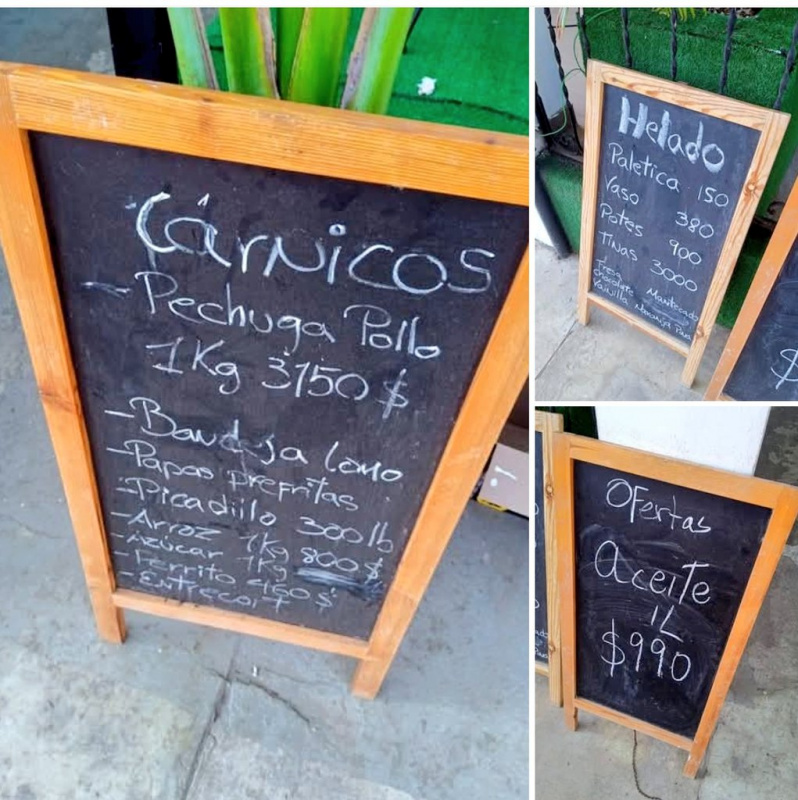 Cárnicos
- Pechuga Pollo
1Kg 3150 $
- Bandeja lomo
- Papas prefritas
- Picadillo 300 lb
- Arroz 1Kg 800 $
- Azúcar 1Kg
- Perrito 460 $
- Entrecort
Helado
Paletica 150
Vaso 380
Potes 900
Tinas 3000
Fresa
chocolate Mantecado
Vainilla Naranja Piña
$
Ofertas
aceite
1L
$990